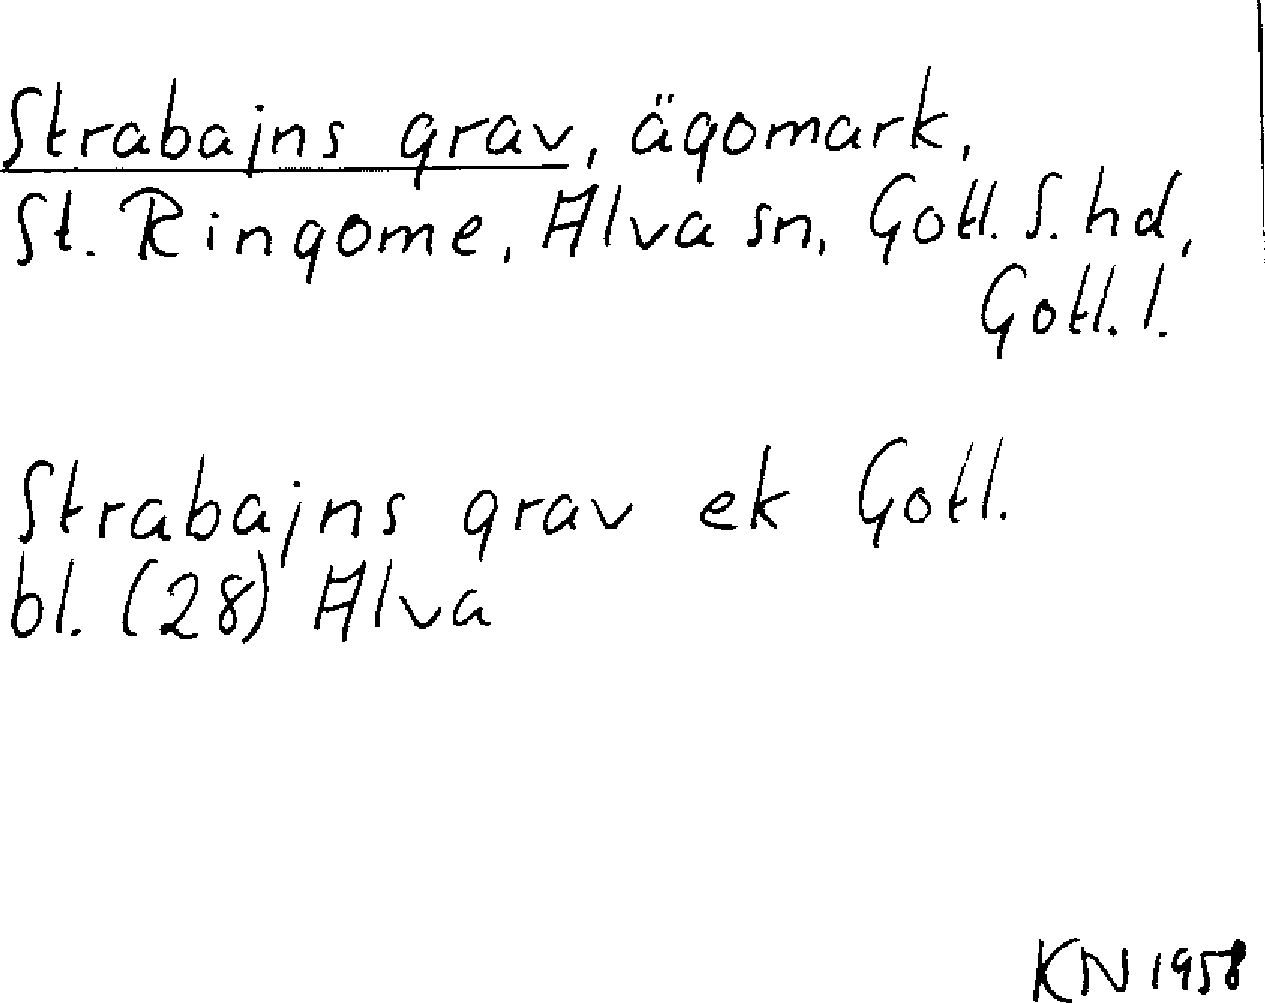 Strabajns grav, ägomark,
St. Ringome, Alva sn, Gotl. S. hd,
Gotl. l.
Strabajns grav ek Gotl.
bl. (28) Alva
KN 1958